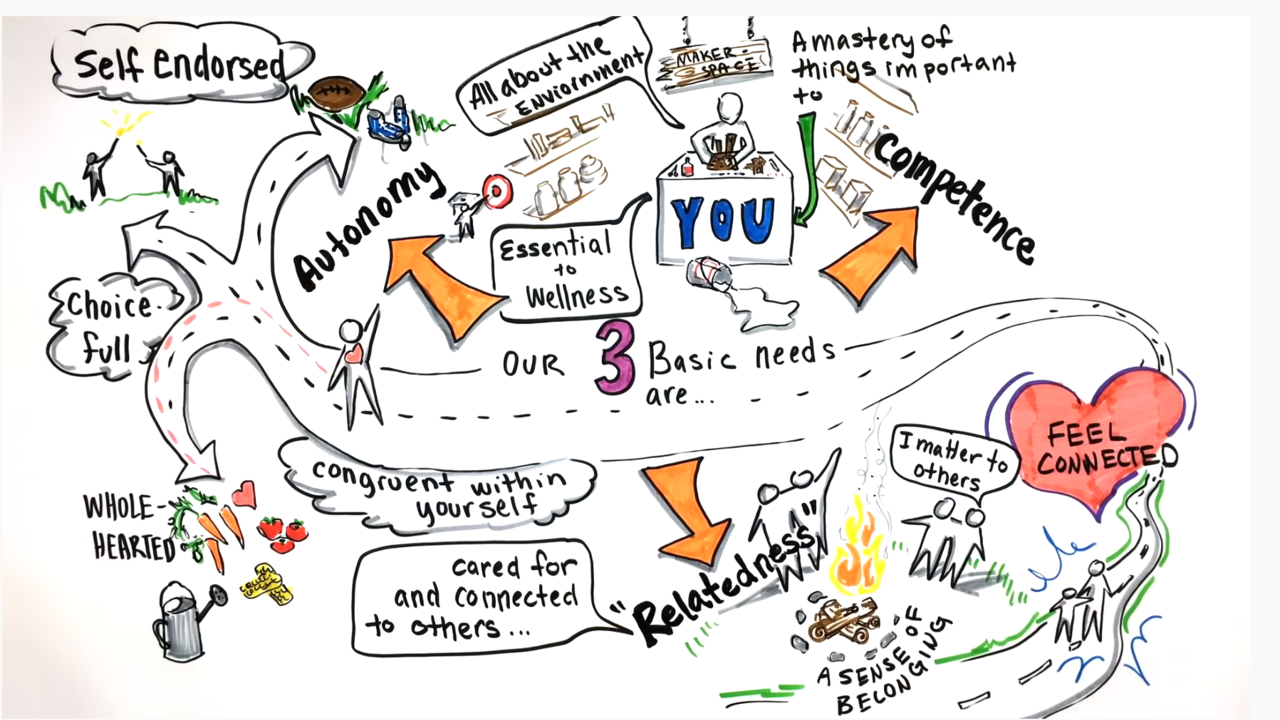 Self Endorsed
All about the
Enviornment
MAKER-
SPACE
A mastery of
things important
to
Autonomy
Competence
YOU
Essential
to
Wellness
Choice-
full
OUR 3 Basic needs
are...
FEEL
CONNECTED
I matter to
others
congruent within
yourself
WHOLE-
HEARTED
cared for
and connected
to others...
"Relatedness"
A SENSE OF
BELONGING